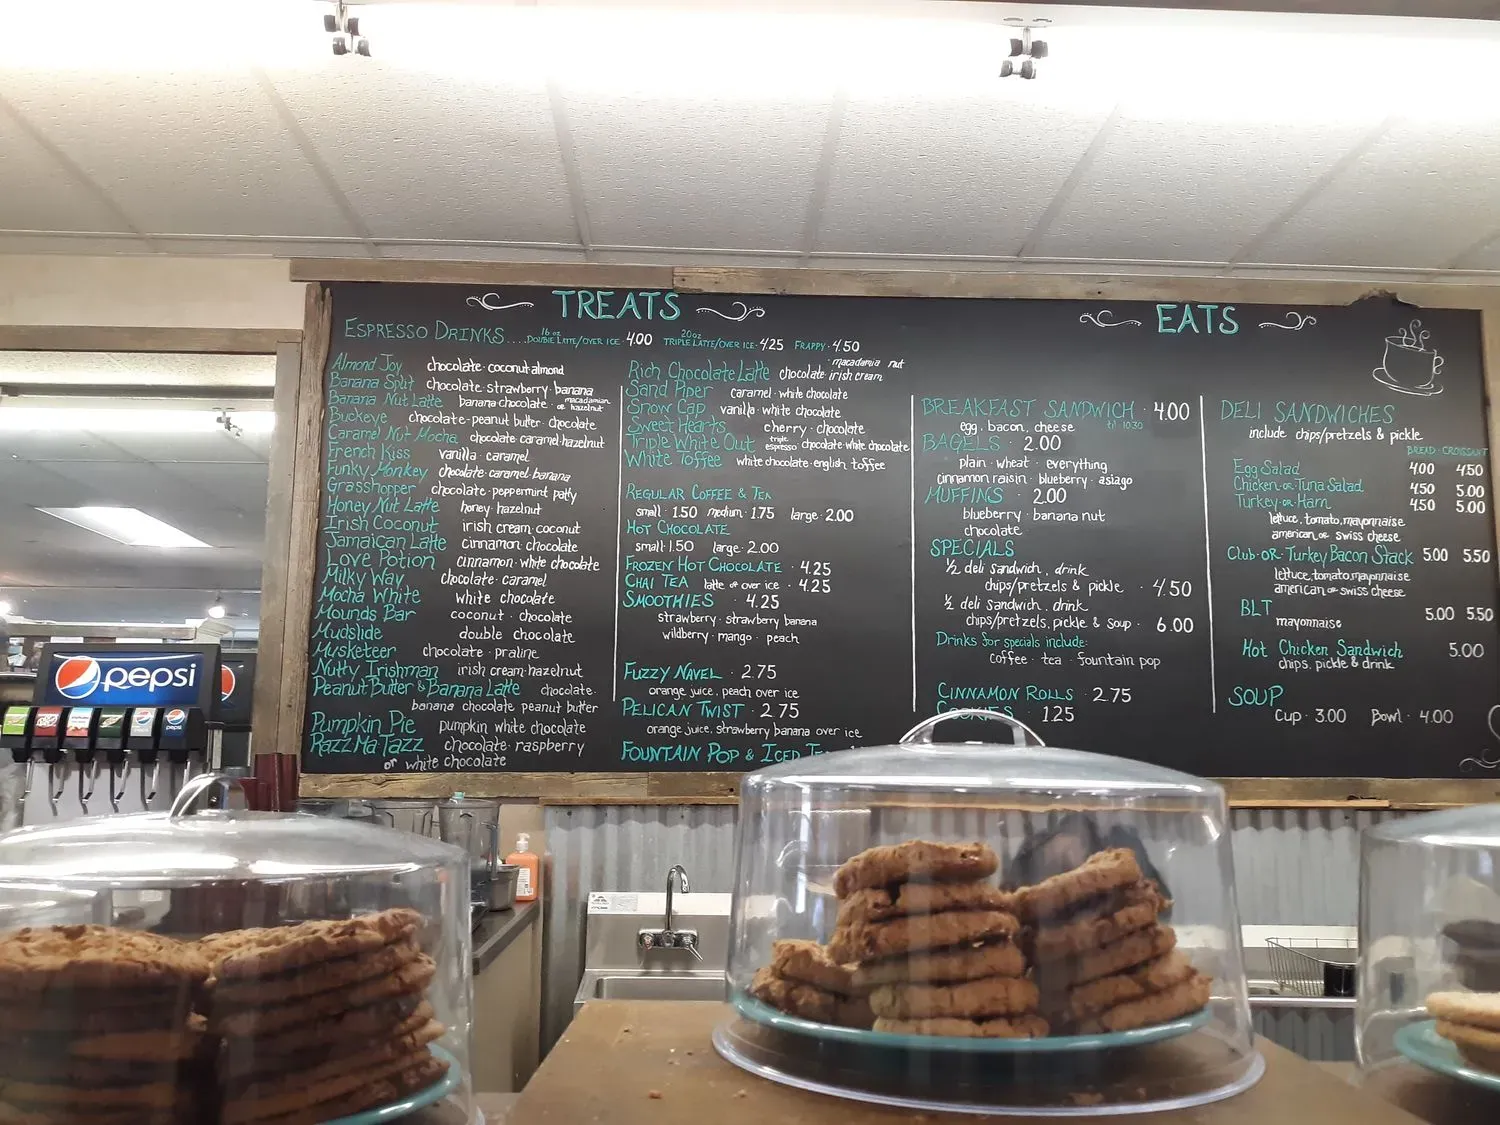 TREATS
ESPRESSO DRINKS.... 16 oz DOUBLE LATTE/OVER ICE · 4.00 20oz TRIPLE LATTE/OVER ICE · 4.25 FRAPPY · 4.50
Almond Joy chocolate · coconut · almond
Banana Split chocolate · strawberry · banana
Banana Nut Latte banana · chocolate · macadamian or hazelnut
Buckeye chocolate · peanut butter · chocolate
Caramel Nut Mocha chocolate · caramel · hazelnut
French Kiss vanilla · caramel
Funky Monkey chocolate · caramel · banana
Grasshopper chocolate · peppermint patty
Honey Nut Latte honey · hazelnut
Irish Coconut irish cream · coconut
Jamaican Latte cinnamon · chocolate
Love Potion cinnamon · white chocolate
Milky Way chocolate · caramel
Mocha White white chocolate
Mounds Bar coconut · chocolate
Mudslide double chocolate
Musketeer chocolate · praline
Nutty Irishman irish cream · hazelnut
Peanut Butter & Banana Latte chocolate ·
banana chocolate peanut butter
Pumpkin Pie pumpkin white chocolate
Razz Ma Tazz chocolate · raspberry
or white chocolate
Rich Chocolate Latte chocolate · irish cream · macadamia nut
Sand Piper caramel · white chocolate
Snow Cap vanilla · white chocolate
Sweet Hearts cherry · chocolate
Triple White Out triple espresso · chocolate · white chocolate
White Toffee white chocolate · english toffee
REGULAR COFFEE & TEA
small · 1.50 medium · 1.75 large · 2.00
HOT CHOCOLATE
small · 1.50 large · 2.00
FROZEN HOT CHOCOLATE · 4.25
CHAI TEA latte or over ice · 4.25
SMOOTHIES · 4.25
strawberry · strawberry banana
wildberry · mango · peach
FUZZY NAVEL · 2.75
orange juice, peach over ice
PELICAN TWIST · 2.75
orange juice, strawberry banana over ice
FOUNTAIN POP & ICED
EATS
BREAKFAST SANDWICH · 4.00
egg, bacon, cheese til 10:30
BAGELS · 2.00
plain · wheat · everything
cinnamon raisin · blueberry · asiago
MUFFINS · 2.00
blueberry · banana nut
chocolate
SPECIALS
½ deli sandwich, drink
chips/pretzels & pickle · 4.50
½ deli sandwich, drink
chips/pretzels, pickle & soup · 6.00
Drinks for specials include:
coffee · tea · fountain pop
CINNAMON ROLLS · 2.75
COOKIES · 1.25
DELI SANDWICHES
include chips/pretzels & pickle
BREAD CROISSANT
Egg Salad 4.00 4.50
Chicken or Tuna Salad 4.50 5.00
Turkey or Ham 4.50 5.00
lettuce, tomato, mayonnaise
american or swiss cheese
Club OR Turkey Bacon Stack 5.00 5.50
lettuce, tomato, mayonnaise
american or swiss cheese
BLT 5.00 5.50
mayonnaise
Hot Chicken Sandwich 5.00
chips, pickle & drink
SOUP
Cup · 3.00 Bowl · 4.00
pepsi